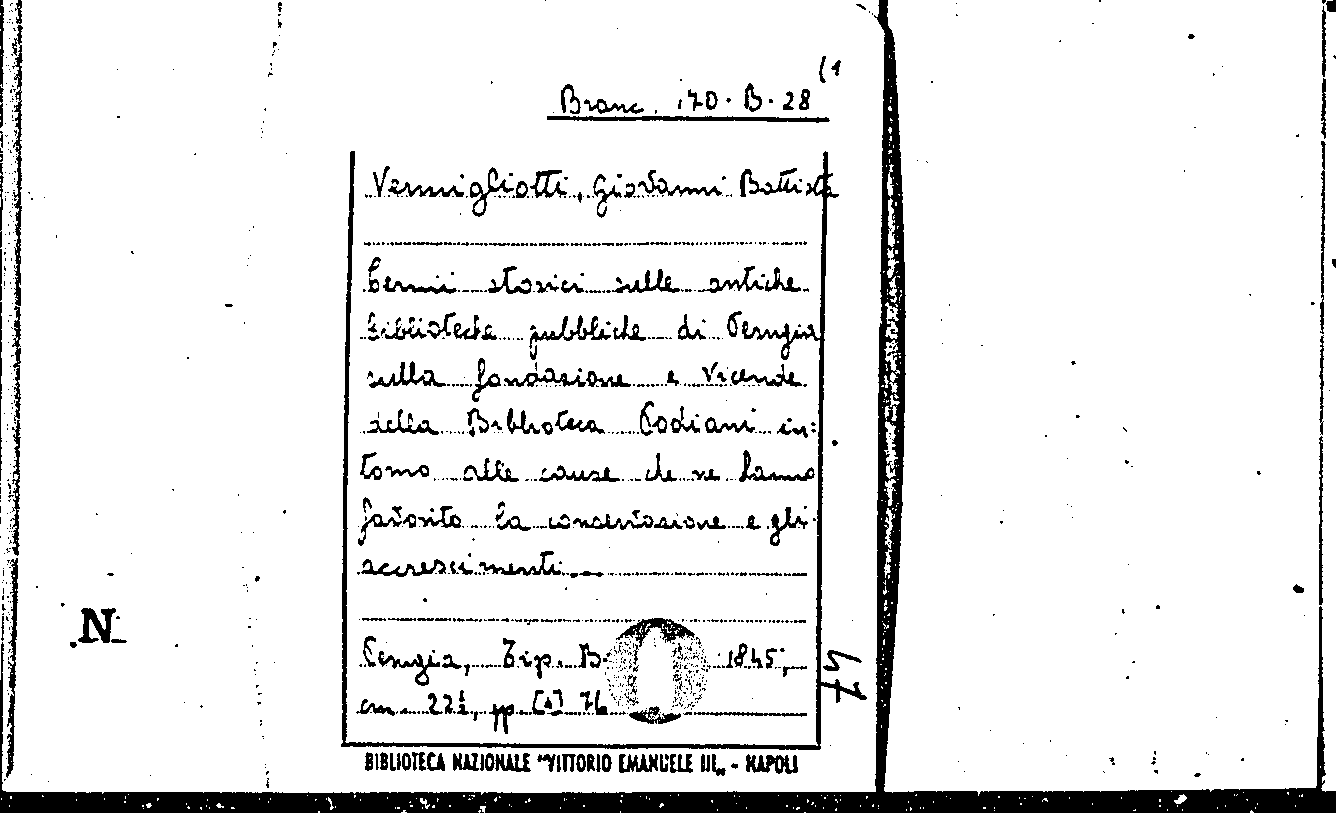 (1
Branc. 170. B. 28
Vermigliotti, Giovanni Battista
Cenni storici sulle antiche
biblioteche pubbliche di Perugia
sulla fondazione e vicende
della Biblioteca Podiani in:
torno alle cause che ne hanno
favorito la conservazione e gli
accrescimenti...
N
Perugia, Tip. B 1845,
cm. 22½, pp. [4] 76
47
BIBLIOTECA NAZIONALE "VITTORIO EMANUELE III„ - NAPOLI